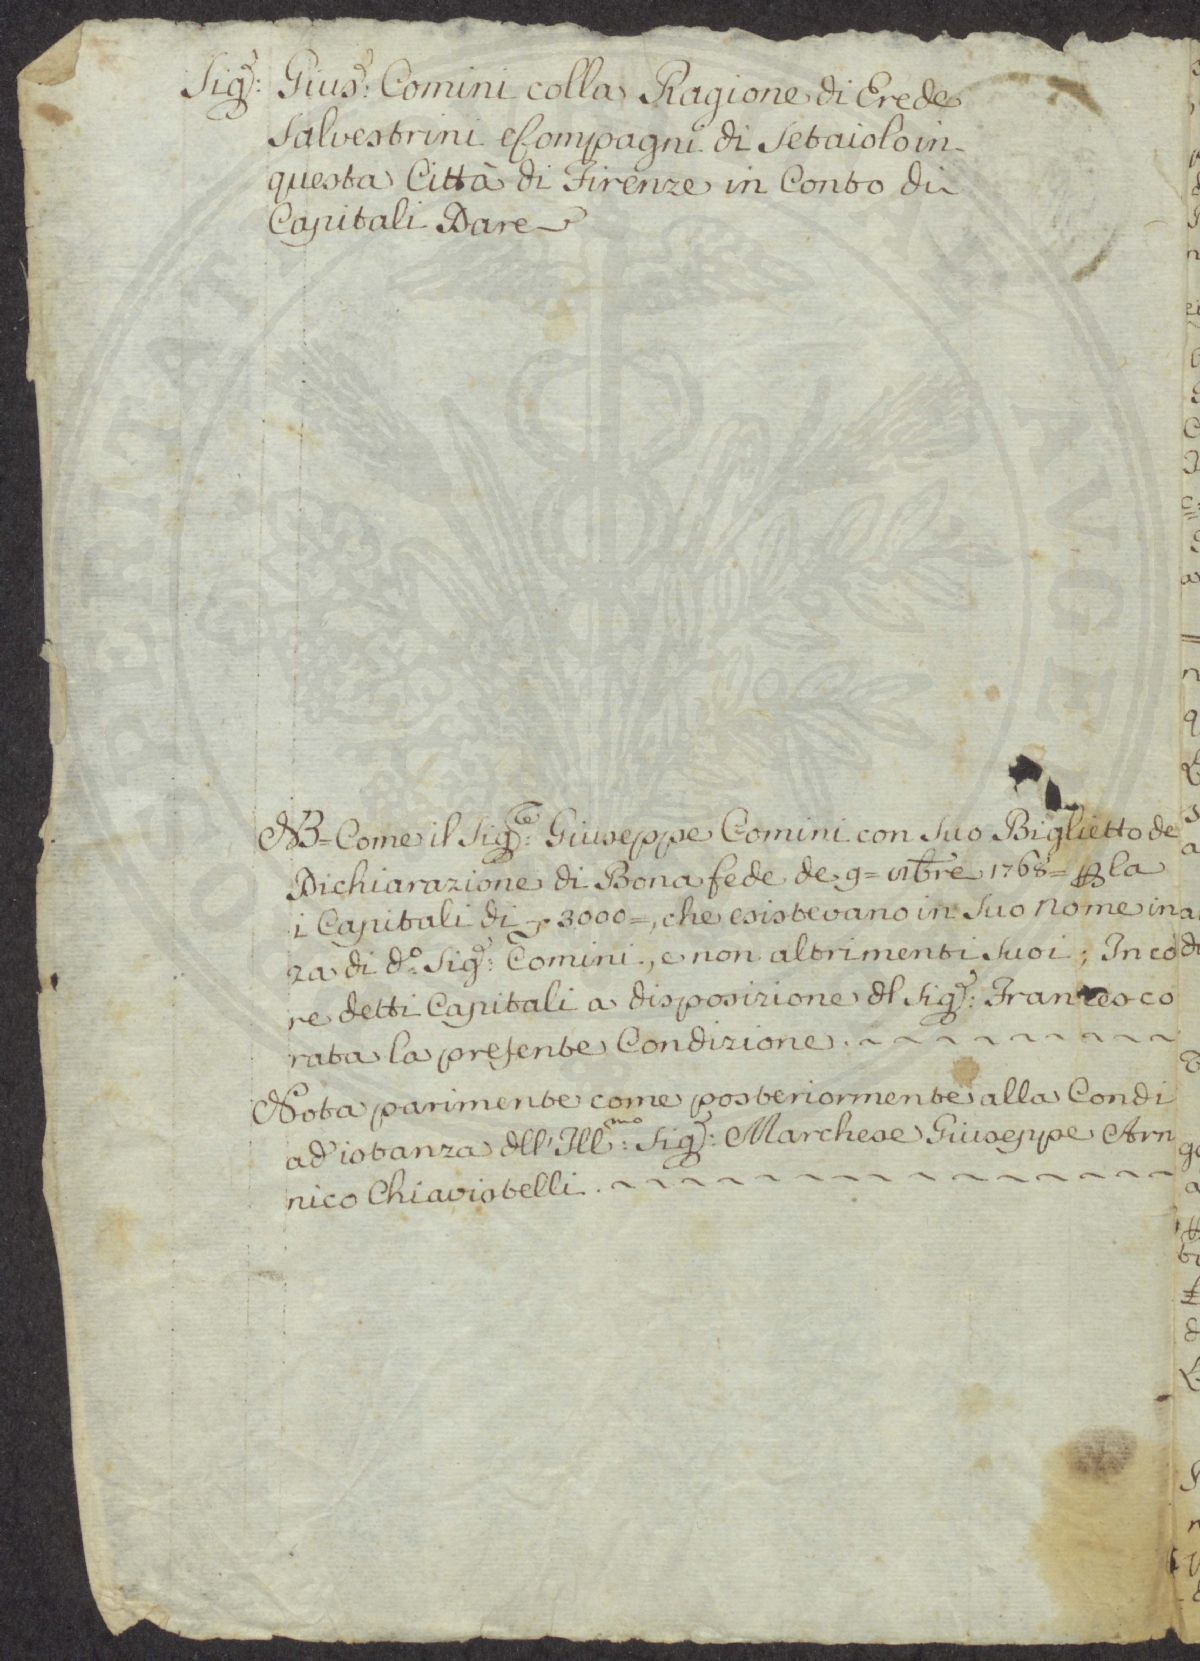 Sig.r: Gius.e: Comini colla Ragione di Erede
Salvestrini e Compagni di Setaiolo in
questa Città di Firenze in Conto di
Capitali Dare
NB= Come il Sig.re: Giuseppe Comini con Suo Biglietto de
Dichiarazione di Bona fede de 9= 1768= la
i Capitali di 3000=, che esistevano in Suo Nome in
za di d.o Sig.r: Comini, e non altrimenti Suoi; In co
re detti Capitali a disposizione dl Sig.r: Francesco
rata la presente Condizione.
Nota parimente come posteriormente alla Condi
ad' istanza dll' Ill.mo: Sig.r: Marchese Giuseppe Arn
nico Chiavistelli.